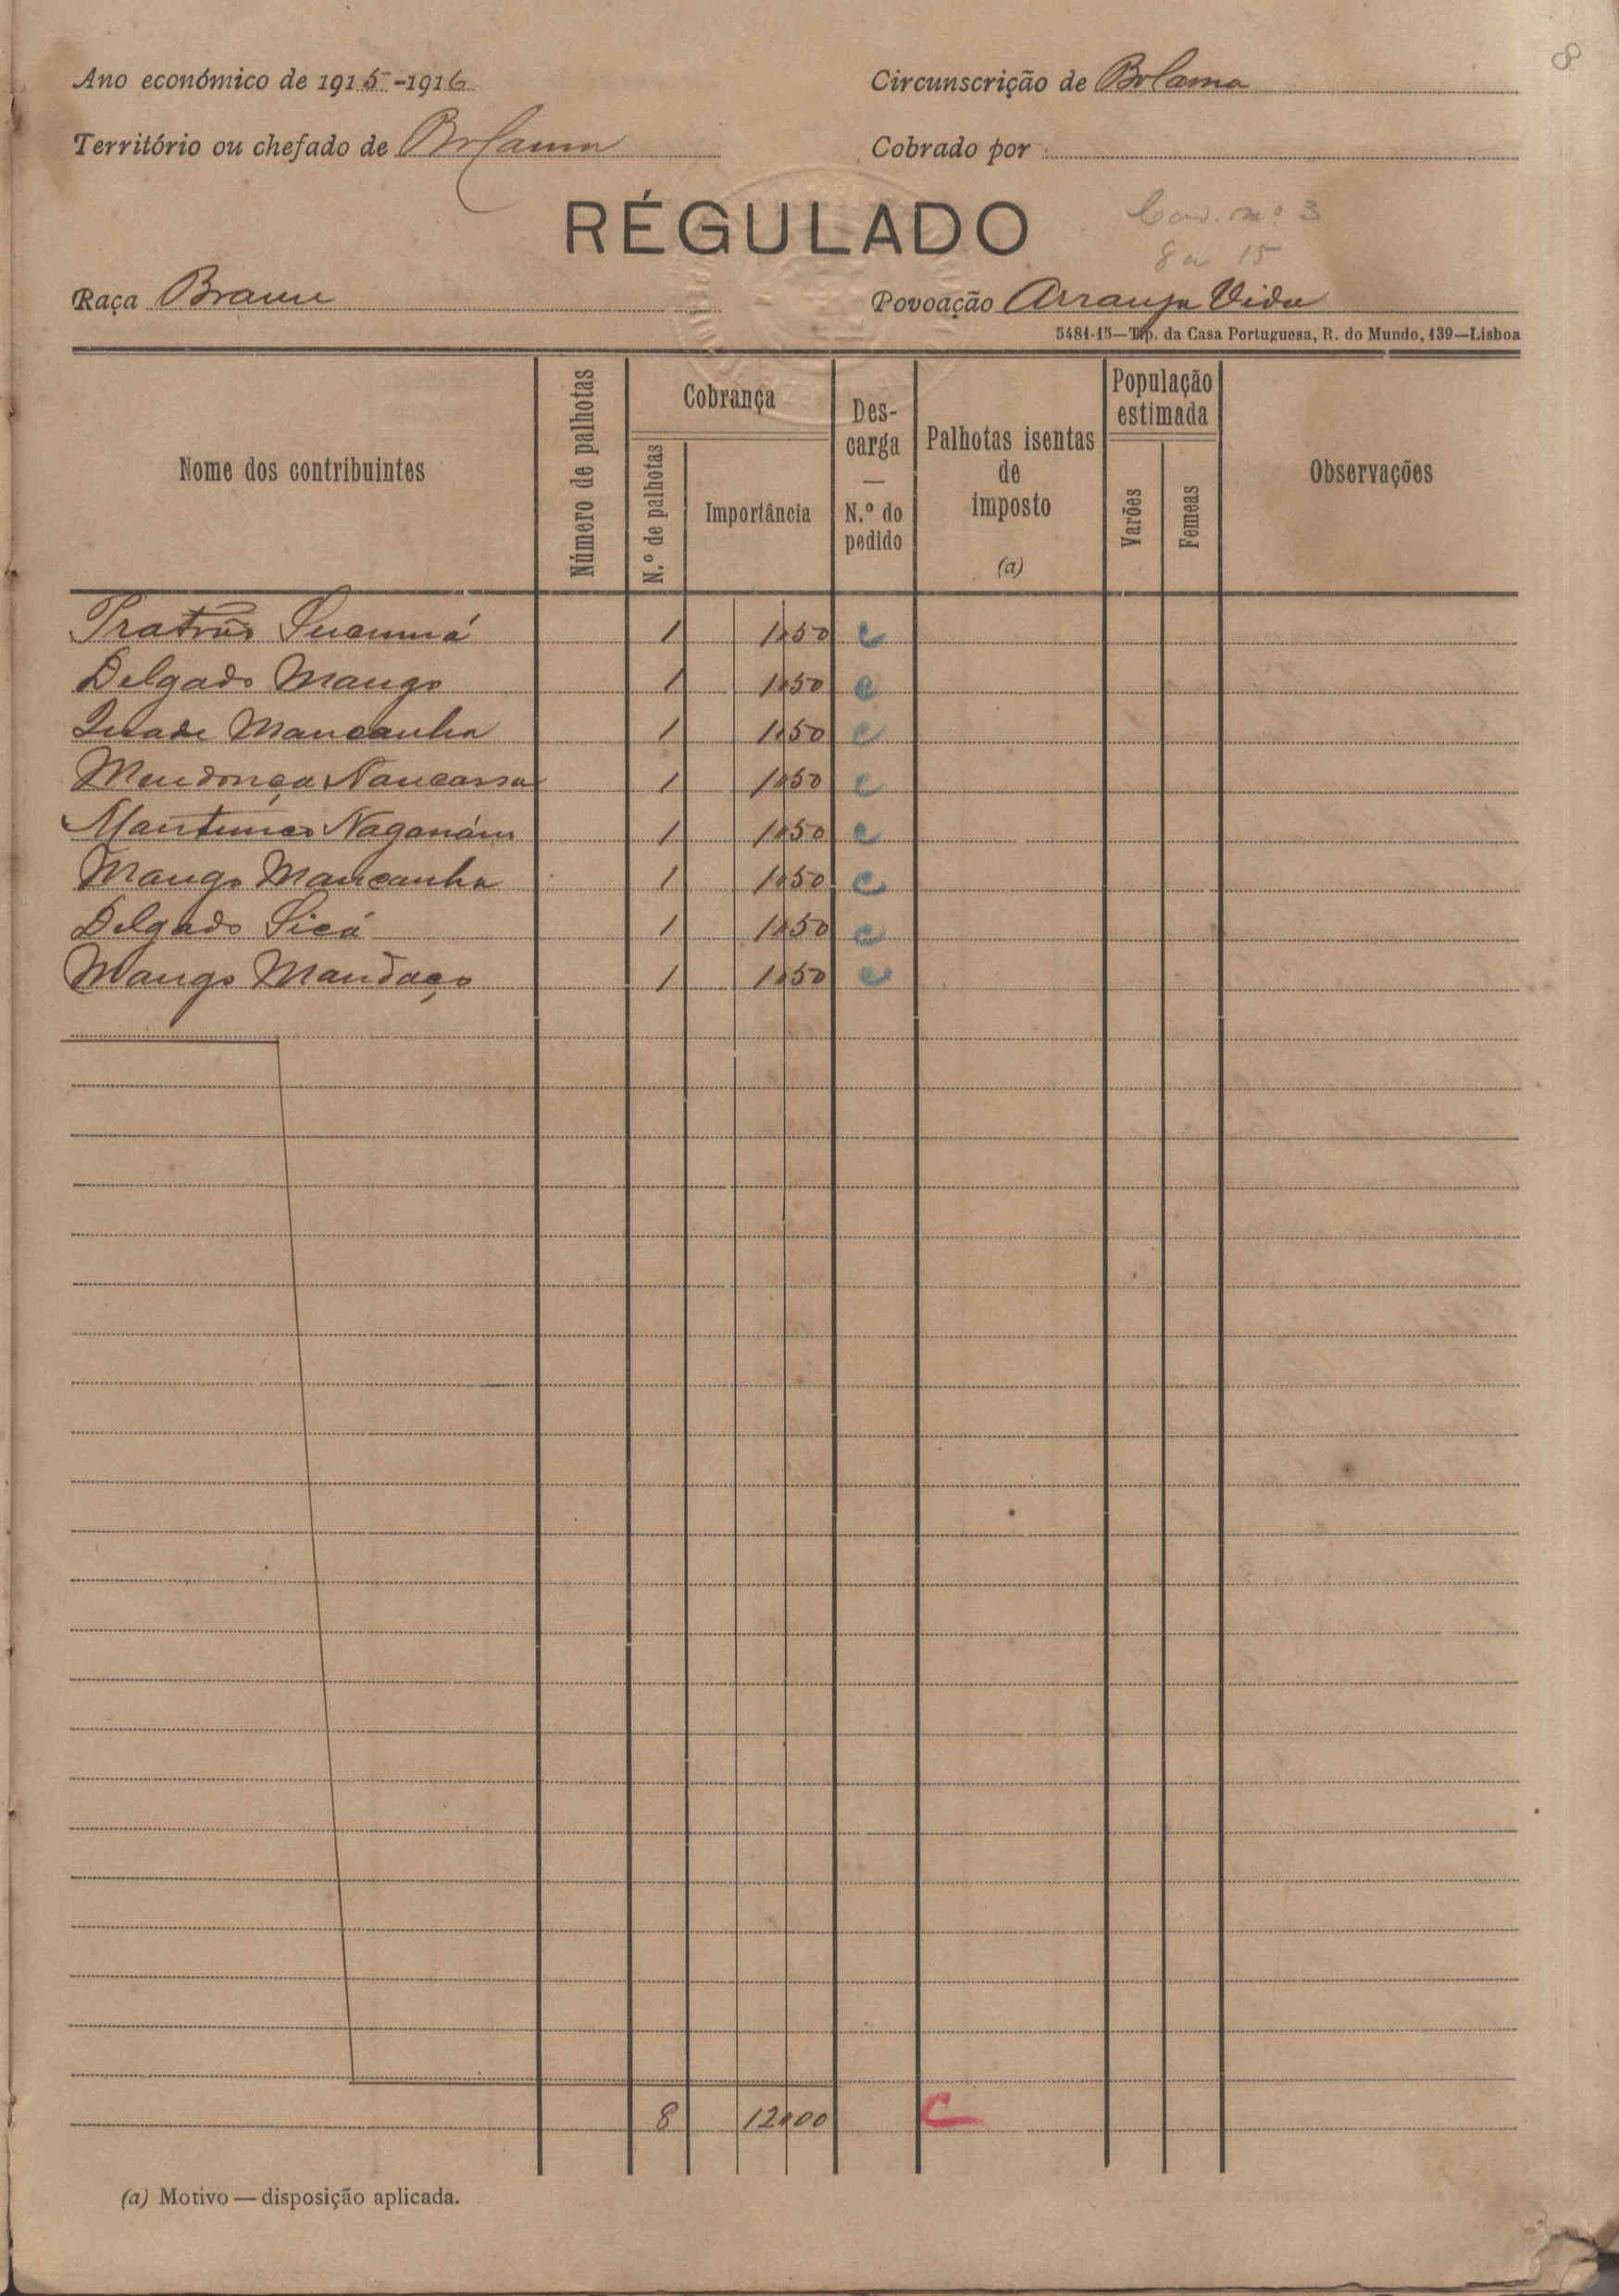 8
Ano económico de 1915-1916
Circunscrição de Bolama
Território ou chefado de Bolama
Cobrado por
RÉGULADO
nº 3
8 a 15
Raça Brame
Povoação Arranja Vida
5481-15—Tip. da Casa Portuguesa, R. do Mundo, 139—Lisboa
Nome dos contribuintes
Número de palhotas
Cobrança
N.º de palhotas
Importância
Descarga — N.º do pedido
Palhotas isentas de imposto (a)
População estimada
Varões
Femeas
Observações
1 1$50 c
Delgado Mango 1 1$50 c
Mancanha 1 1$50 c
Mendonça Nancassa 1 1$50 c
1 1$50 c
Mango Mancanha 1 1$50 c
Delgado Sicá 1 1$50 c
Mango Mandaço 1 1$50 c
8 12$00 C
(a) Motivo — disposição aplicada.